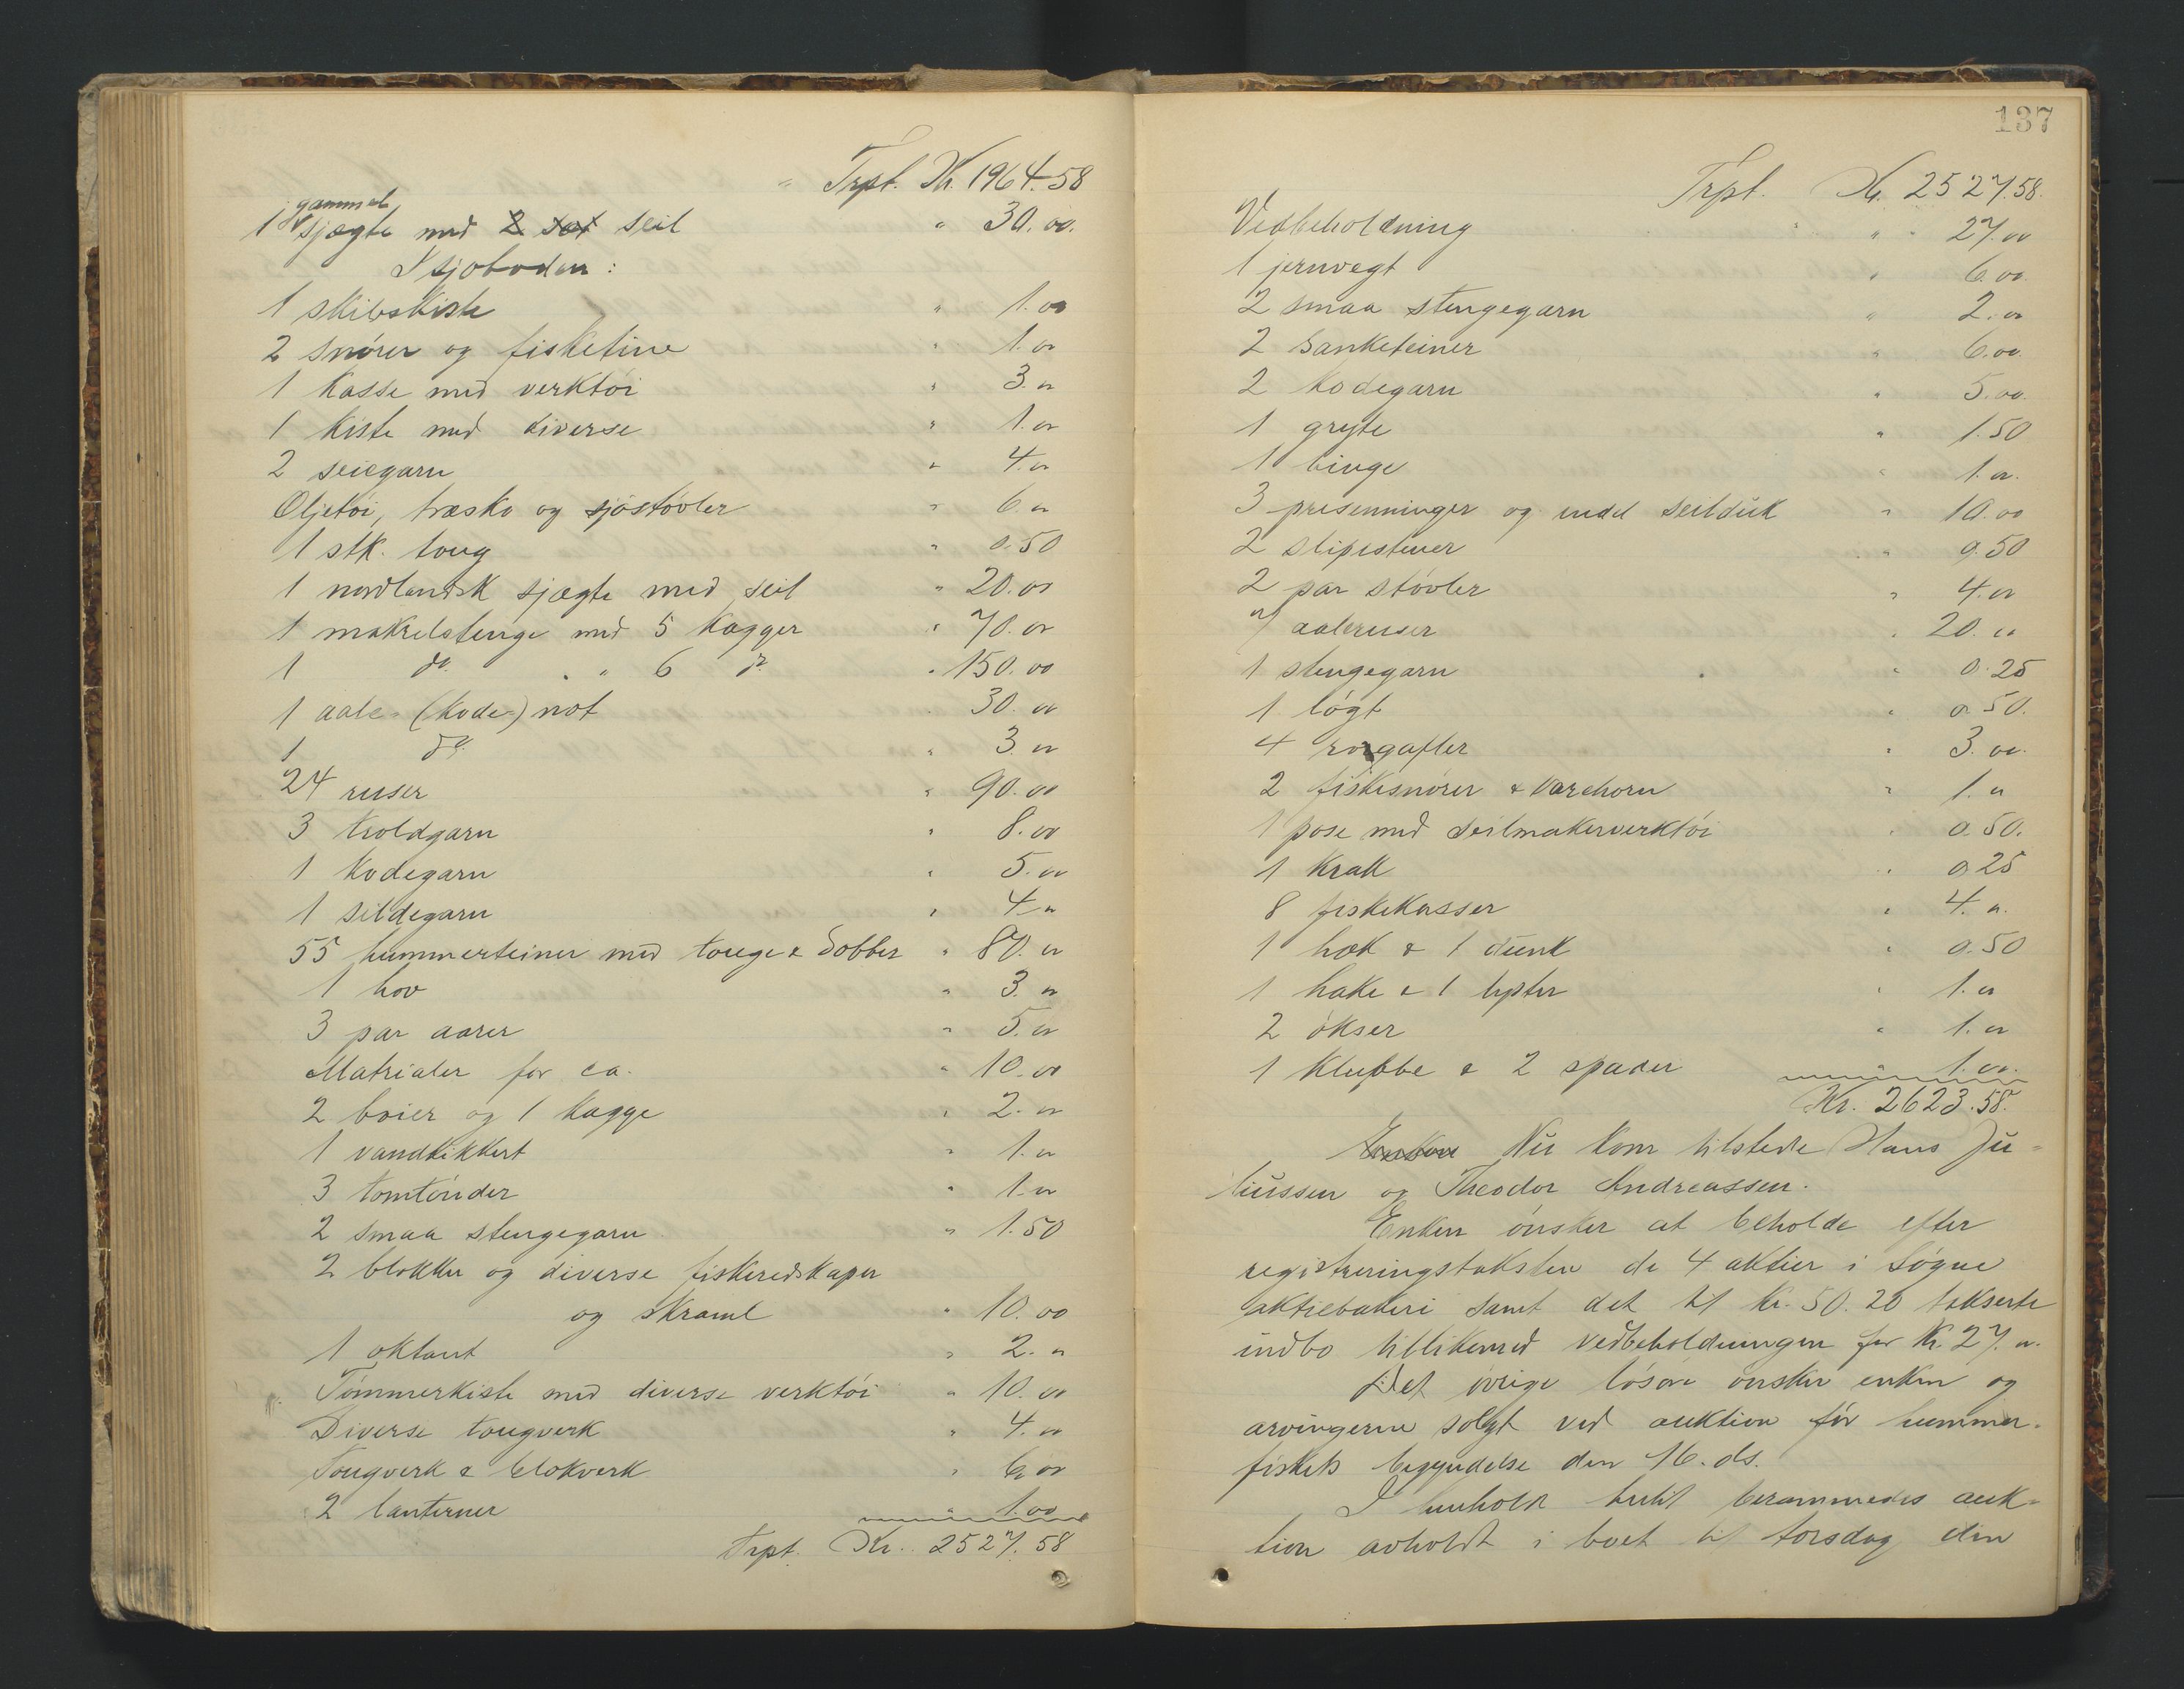 Trpt. Kr. 1964.58
gammel
1 sjægte med 2 sæt seil " 30.00.
I sjøboden:
1 skibskiste " 1.00
2 snører og fisketine " 1.00
1 kasse med verktøi " 3.00
1 kiste med diverse " 1.00
2 seiegarn " 4.00
Oljetøi, træsko og sjøstøvler " 6.00
1 stk. toug " 0.50
1 nordlandsk sjægte med seil " 20.00
1 makrelstenge med 5 kagger " 70.00
1 do. " 6 do " 150.00
1 aale- (kode-) not 30.00
1 do. " 3.00
24 ruser " 90.00
3 troldgarn " 8.00
1 kodegarn " 5.00
1 sildegarn " 4.00
55 hummerteiner med touge & dobber " 80.00
1 hov " 3.00
3 par aarer " 5.00
Matrialer for ca. " 10.00
2 bøier og 1 kagge " 2.00
1 vandkikkert " 1.00
3 tomtønder " 1.00
2 smaa stengegarn " 1.50
2 blokker og diverse fiskeredskaper
og skraml " 10.00
1 oktant " 2.00
Tømmerkiste med diverse verktøi " 10.00
Diverse tougverk " 4.00
Tougverk & blokverk " 6.00
2 lanterner " 1.00
Trpt. Kr. 2527.58
137
Trpt. Kr. 2527.58.
Vedbeholdning " 27.00
1 jernvegt " 6.00
2 smaa stengegarn " 2.00
2 sanketeiner " 6.00
2 kodegarn " 5.00
1 gryte " 1.50
1 binge " 1.00
3 presenninger og endel seilduk " 10.00
2 slipestener " 0.50
2 par støvler " 4.00
7 aaleruser " 20.00
1 stengegarn " 0.25
1 løgt " 0.50.
4 rorgafler " 3.00
2 fiskesnører & varehorn " 1.00
1 pose med seilmakerverktøi " 0.50.
1 krak " 0.25
8 fiskekasser " 4.00
1 hak & 1 dunk " 0.50
1 hake & 1 lypter " 1.00
2 økser " 1.00
1 klubbe & 2 spader " 1.00.
Kr. 2623.58.
Enken Nu kom tilstede Hans Ju-
liussen og Theodor Andreassen.
Enken ønsker at beholde efter
registreringstaksten de 4 aktier i Søgne
aktiebakeri samt det til kr. 50.20 takserte
indbo tillikemed vedbeholdningen for Kr. 27.00.
Det øvrige løsøre ønsker enken og
arvingerne solgt ved auktion før hummer-
fiskets begyndelse den 16. ds.
I henhold hertil berammedes auk-
tion avholdt i boet til torsdag den